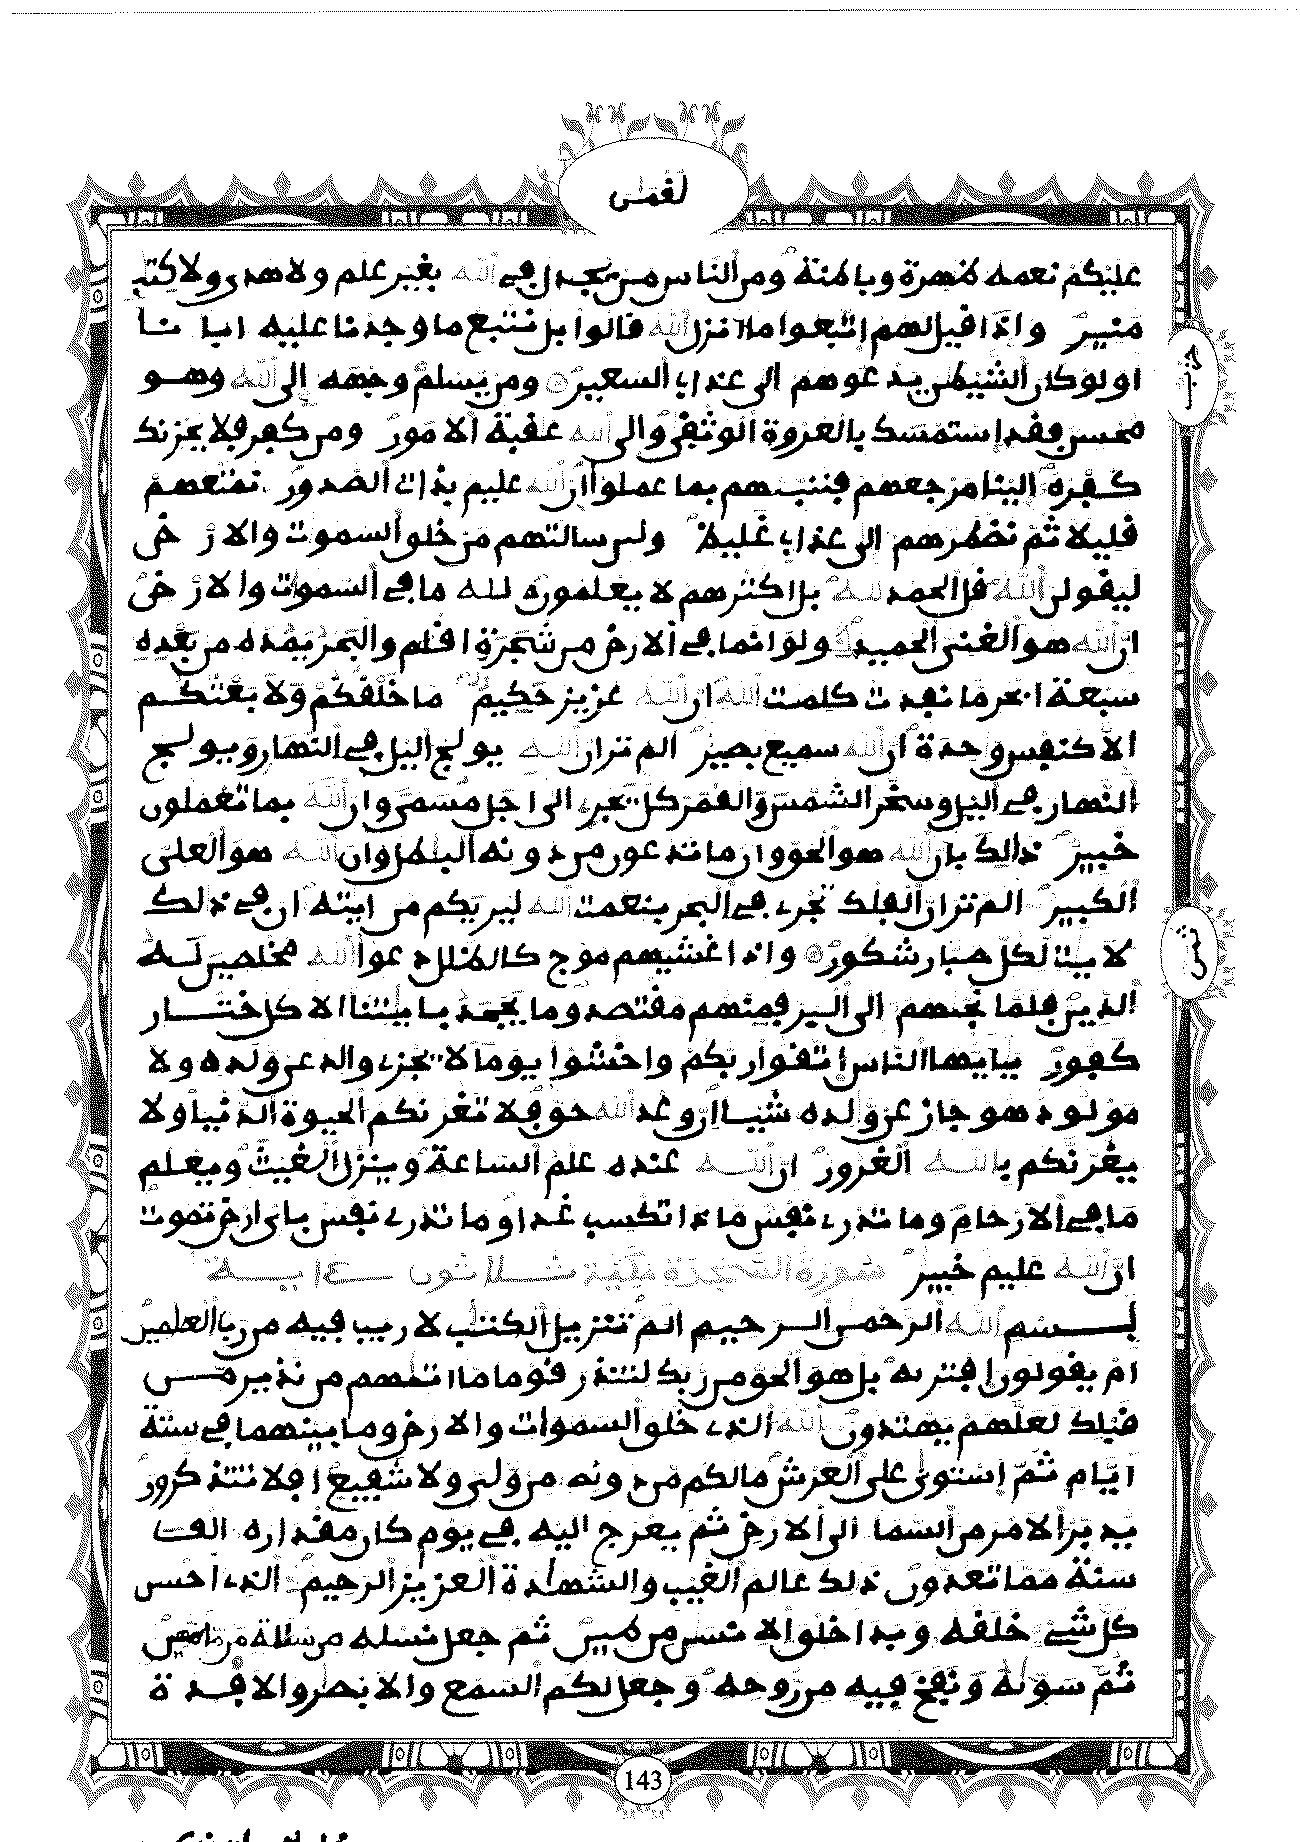 لقمن
عليكم نعمه ظهرة وباطنة ومن الناس من يجدل في الله بغير علم ولا هدى ولا كتب
منير واذا قيل لهم اتبعوا ما انزل الله قالوا بل نتبع ما وجدنا عليه ابا نا
اولو كان الشيطن يدعوهم الى عذاب السعير ومن يسلم وجهه الى الله وهو
محسن فقد استمسك بالعروة الوثقى والى الله عقبة الامور ومن كفر فلا يحزنك
كفره الينا مرجعهم فننبيهم بما عملوا ان الله عليم بذات الصدور نمتعهم
قليلا ثم نضطرهم الى عذاب غليظ ولين سالتهم من خلق السموت والارض
ليقولن الله قل الحمد لله بل اكثرهم لا يعلمون لله ما في السموات والارض
ان الله هو الغني الحميد ولو انما في الارض من شجرة اقلم والبحر يمده من بعده
سبعة ابحر ما نفدت كلمت الله ان الله عزيز حكيم ما خلقكم ولا بعثكم
الا كنفس وحدة ان الله سميع بصير الم تر ان الله يولج اليل في النهار ويولج
النهار في اليل وسخر الشمس والقمر كل يجرے الى اجل مسمى وان الله بما تعملون
خبير ذالك بان الله هو الحق وان ما تدعون من دونه البطل وان الله هو العلي
الكبير الم تر ان الفلك تجرے في البحر بنعمت الله ليريكم من ايته ان في ذلك
لايت لكل صبار شكور واذا غشيهم موج كالظلل دعوا الله مخلصين له
الدين فلما نجيهم الى البر فمنهم مقتصد وما يجحد بايتنا الا كل ختار
كفور يايها الناس اتقوا ربكم واخشوا يوما لا يجزے والد عن ولده ولا
مولود هو جاز عن ولده شيا ان وعد الله حق فلا تغرنكم الحيوة الدنيا ولا
يغرنكم بالله الغرور ان الله عنده علم الساعة وينزل الغيث ويعلم
ما في الارحام وما تدرے نفس ماذا تكسب غدا وما تدرے نفس باي ارض تموت
ان الله عليم خبير سورة السجدة مكية ثلاثون اية
بسم الله الرحمن الرحيم الم تنزيل الكتب لا ريب فيه من رب العلمين
ام يقولون افتريه بل هو الحق من ربك لتنذر قوما ما اتيهم من نذير من
قبلك لعلهم يهتدون الله الذے خلق السموات والارض وما بينهما في ستة
ايام ثم استوى على العرش مالكم من دونه من ولي ولا شفيع افلا تتذكرون
يدبر الامر من السما الى الارض ثم يعرج اليه في يوم كان مقداره الف
سنة مما تعدون ذلك عالم الغيب والشهادة العزيز الرحيم الذے احسن
كل شے خلقه وبدا خلق الانسن من طين ثم جعل نسله من سللة من ما مهين
ثم سويه ونفخ فيه من روحه وجعل لكم السمع والابصر والافدة
حزب
ثمن
143